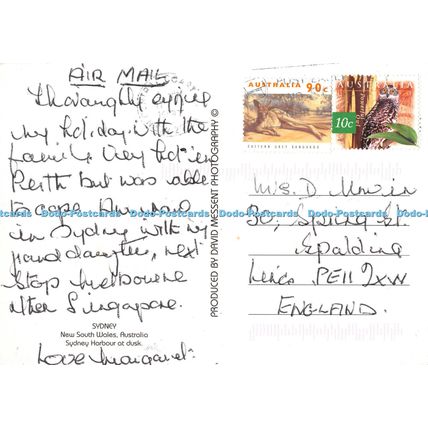 AIR MAIL
Thoroughly enjoyed
my holiday with the
family. Very hot in
Perth but was able
to cope. Am now
in Sydney with my
grand daughter, next
stop Melbourne
then Singapore.
SYDNEY
New South Wales, Australia
Sydney Harbour at dusk.
Love Margaret.
PRODUCED BY DAVID MESSENT PHOTOGRAPHY ©
AUSTRALIA
90c
EASTERN GREY KANGAROO
AUSTRALIA
10c
Mrs. D
30, Spring St.
Spalding
Lincs PE11 2XW
ENGLAND.
Dodo-Postcards Dodo-Postcards Dodo-Postcards Dodo-Postcards Dodo-Postcards Dodo-Postcards